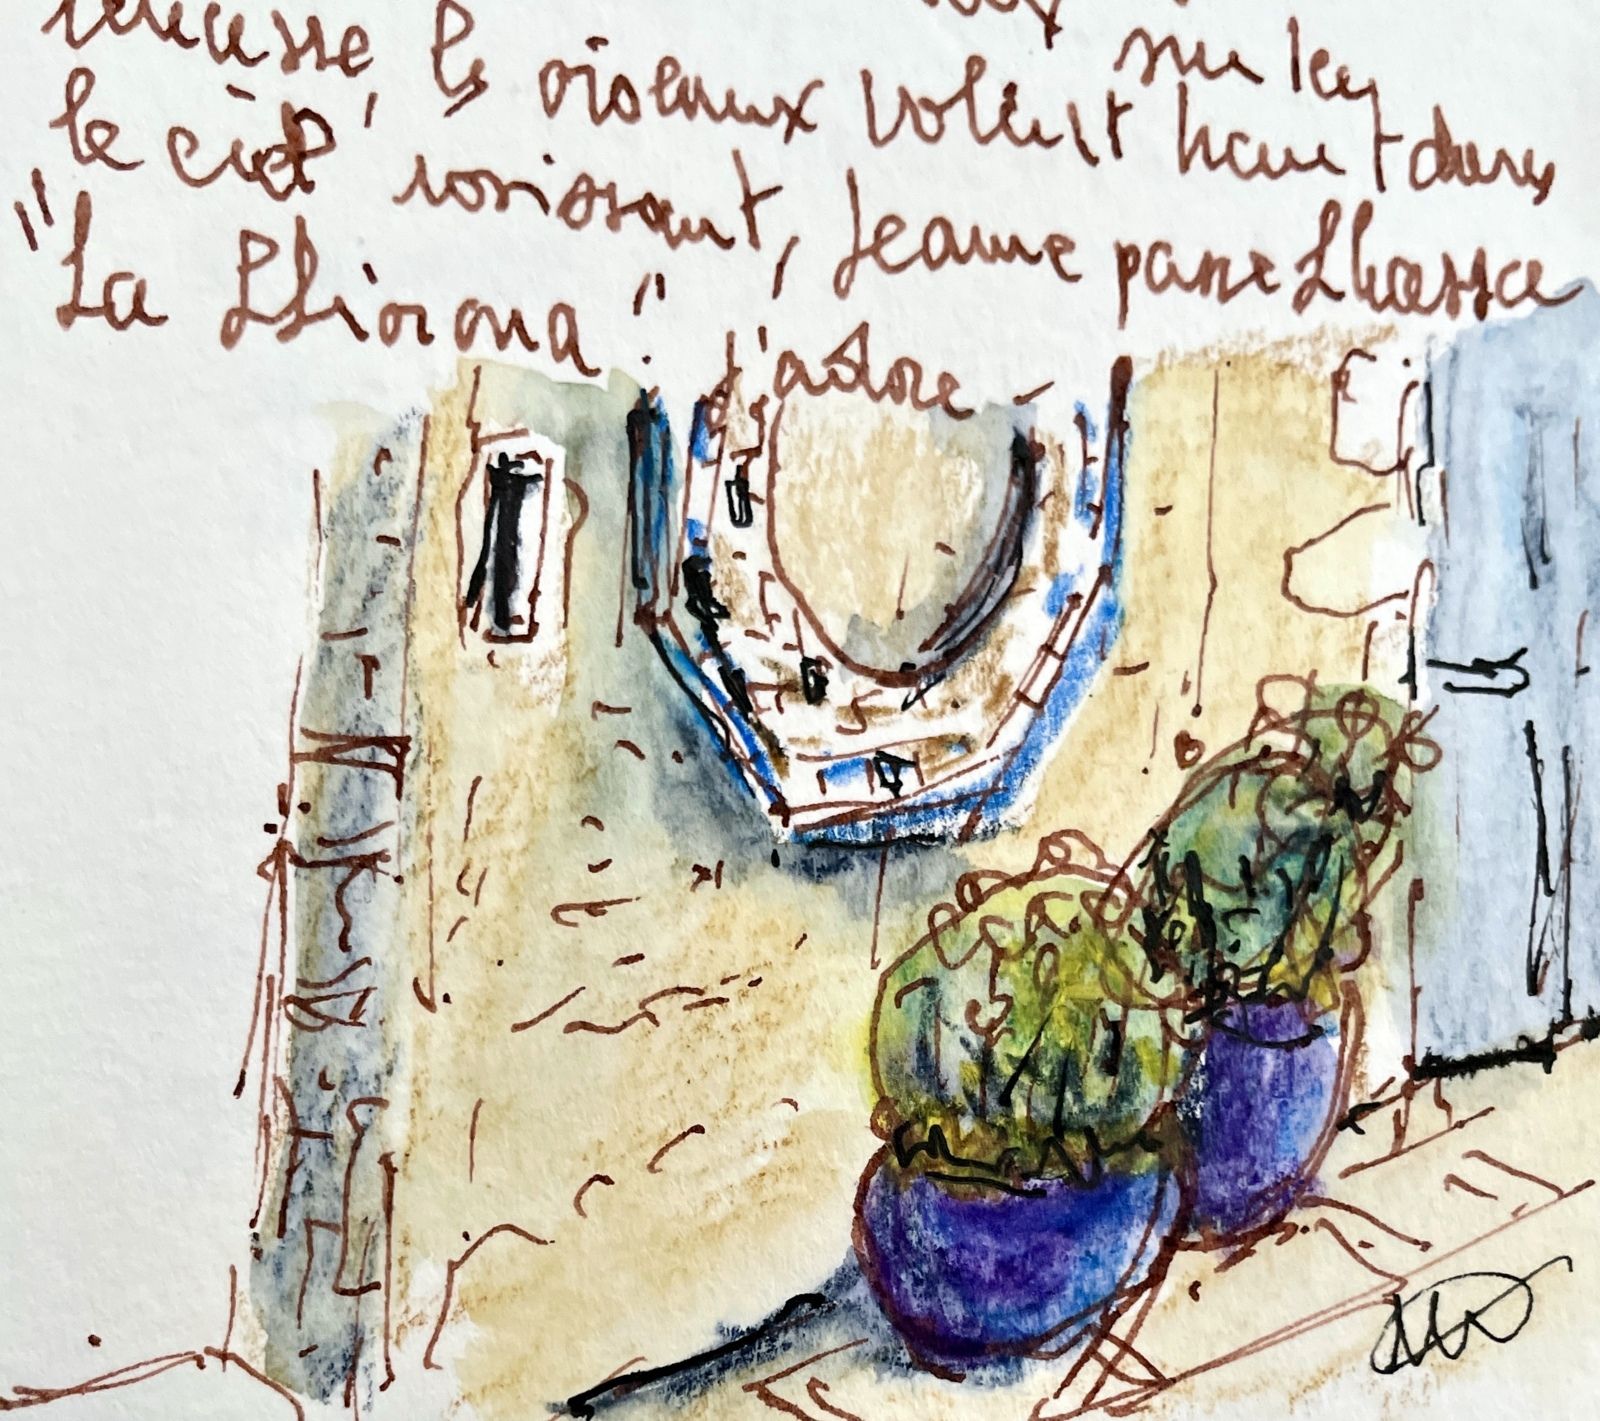 sur les
les oiseaux volent haut dans
le ciel rosissant, Jeanne passe Lhassa
"La Lliorona". J'adore -